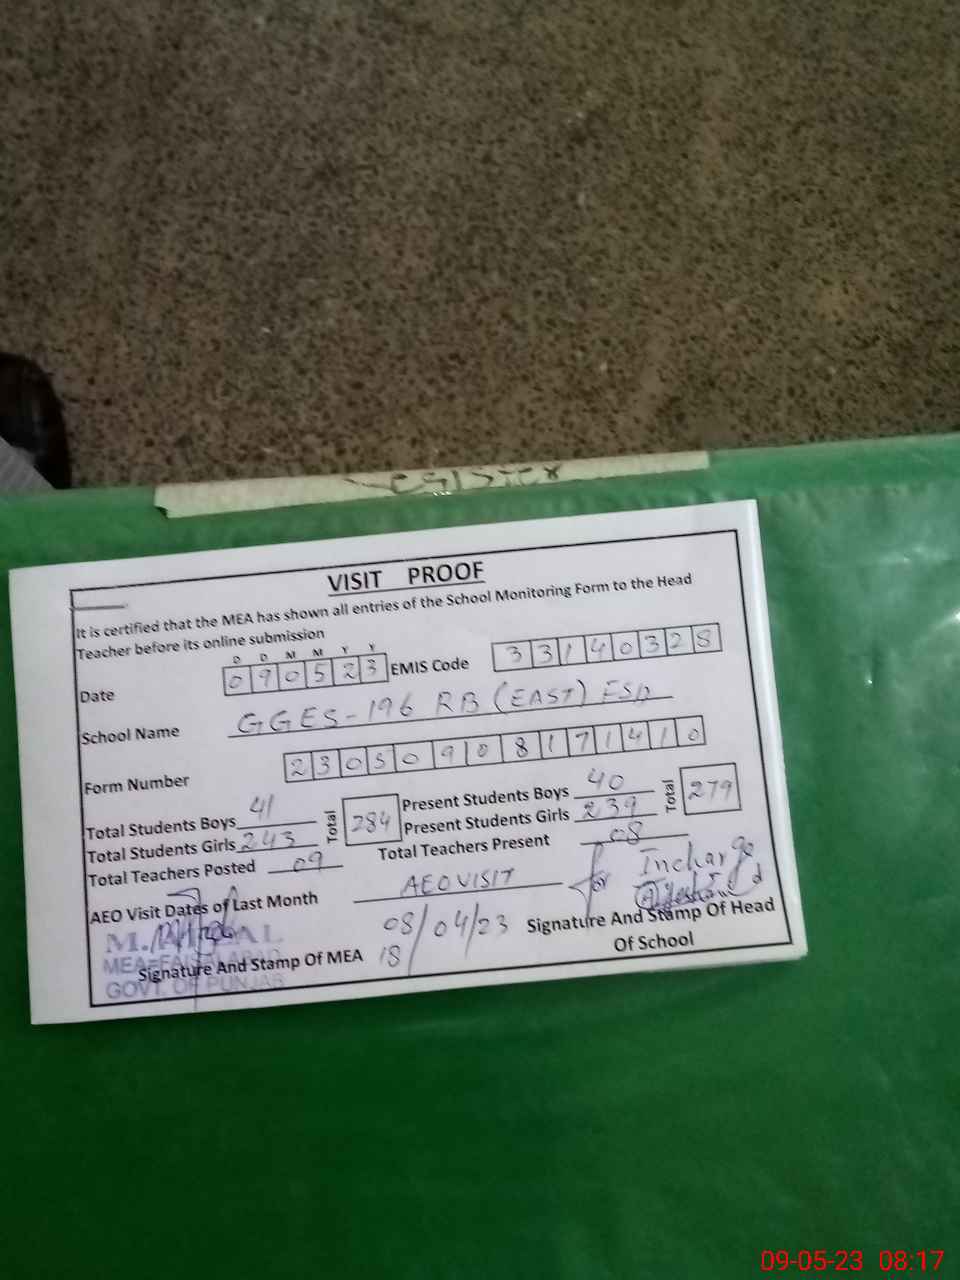 Register
VISIT PROOF
It is certified that the MEA has shown all entries of the School Monitoring Form to the Head
Teacher before its online submission
D D M M Y Y
Date 090523 EMIS Code 33140328
School Name GGES-196 RB (EAST) FSD
Form Number 230509108171410
Total Students Boys 41 Total 284 Present Students Boys 40 Total 279
Total Students Girls 243 Present Students Girls 239
Total Teachers Posted 09 Total Teachers Present 08
AEO Visit Dates of Last Month AEO VISIT for Incharge
08/04/23
18
Signature And Stamp Of MEA Signature And Stamp Of Head
Of School
GOVT. OF PUNJAB
09-05-23 08:17